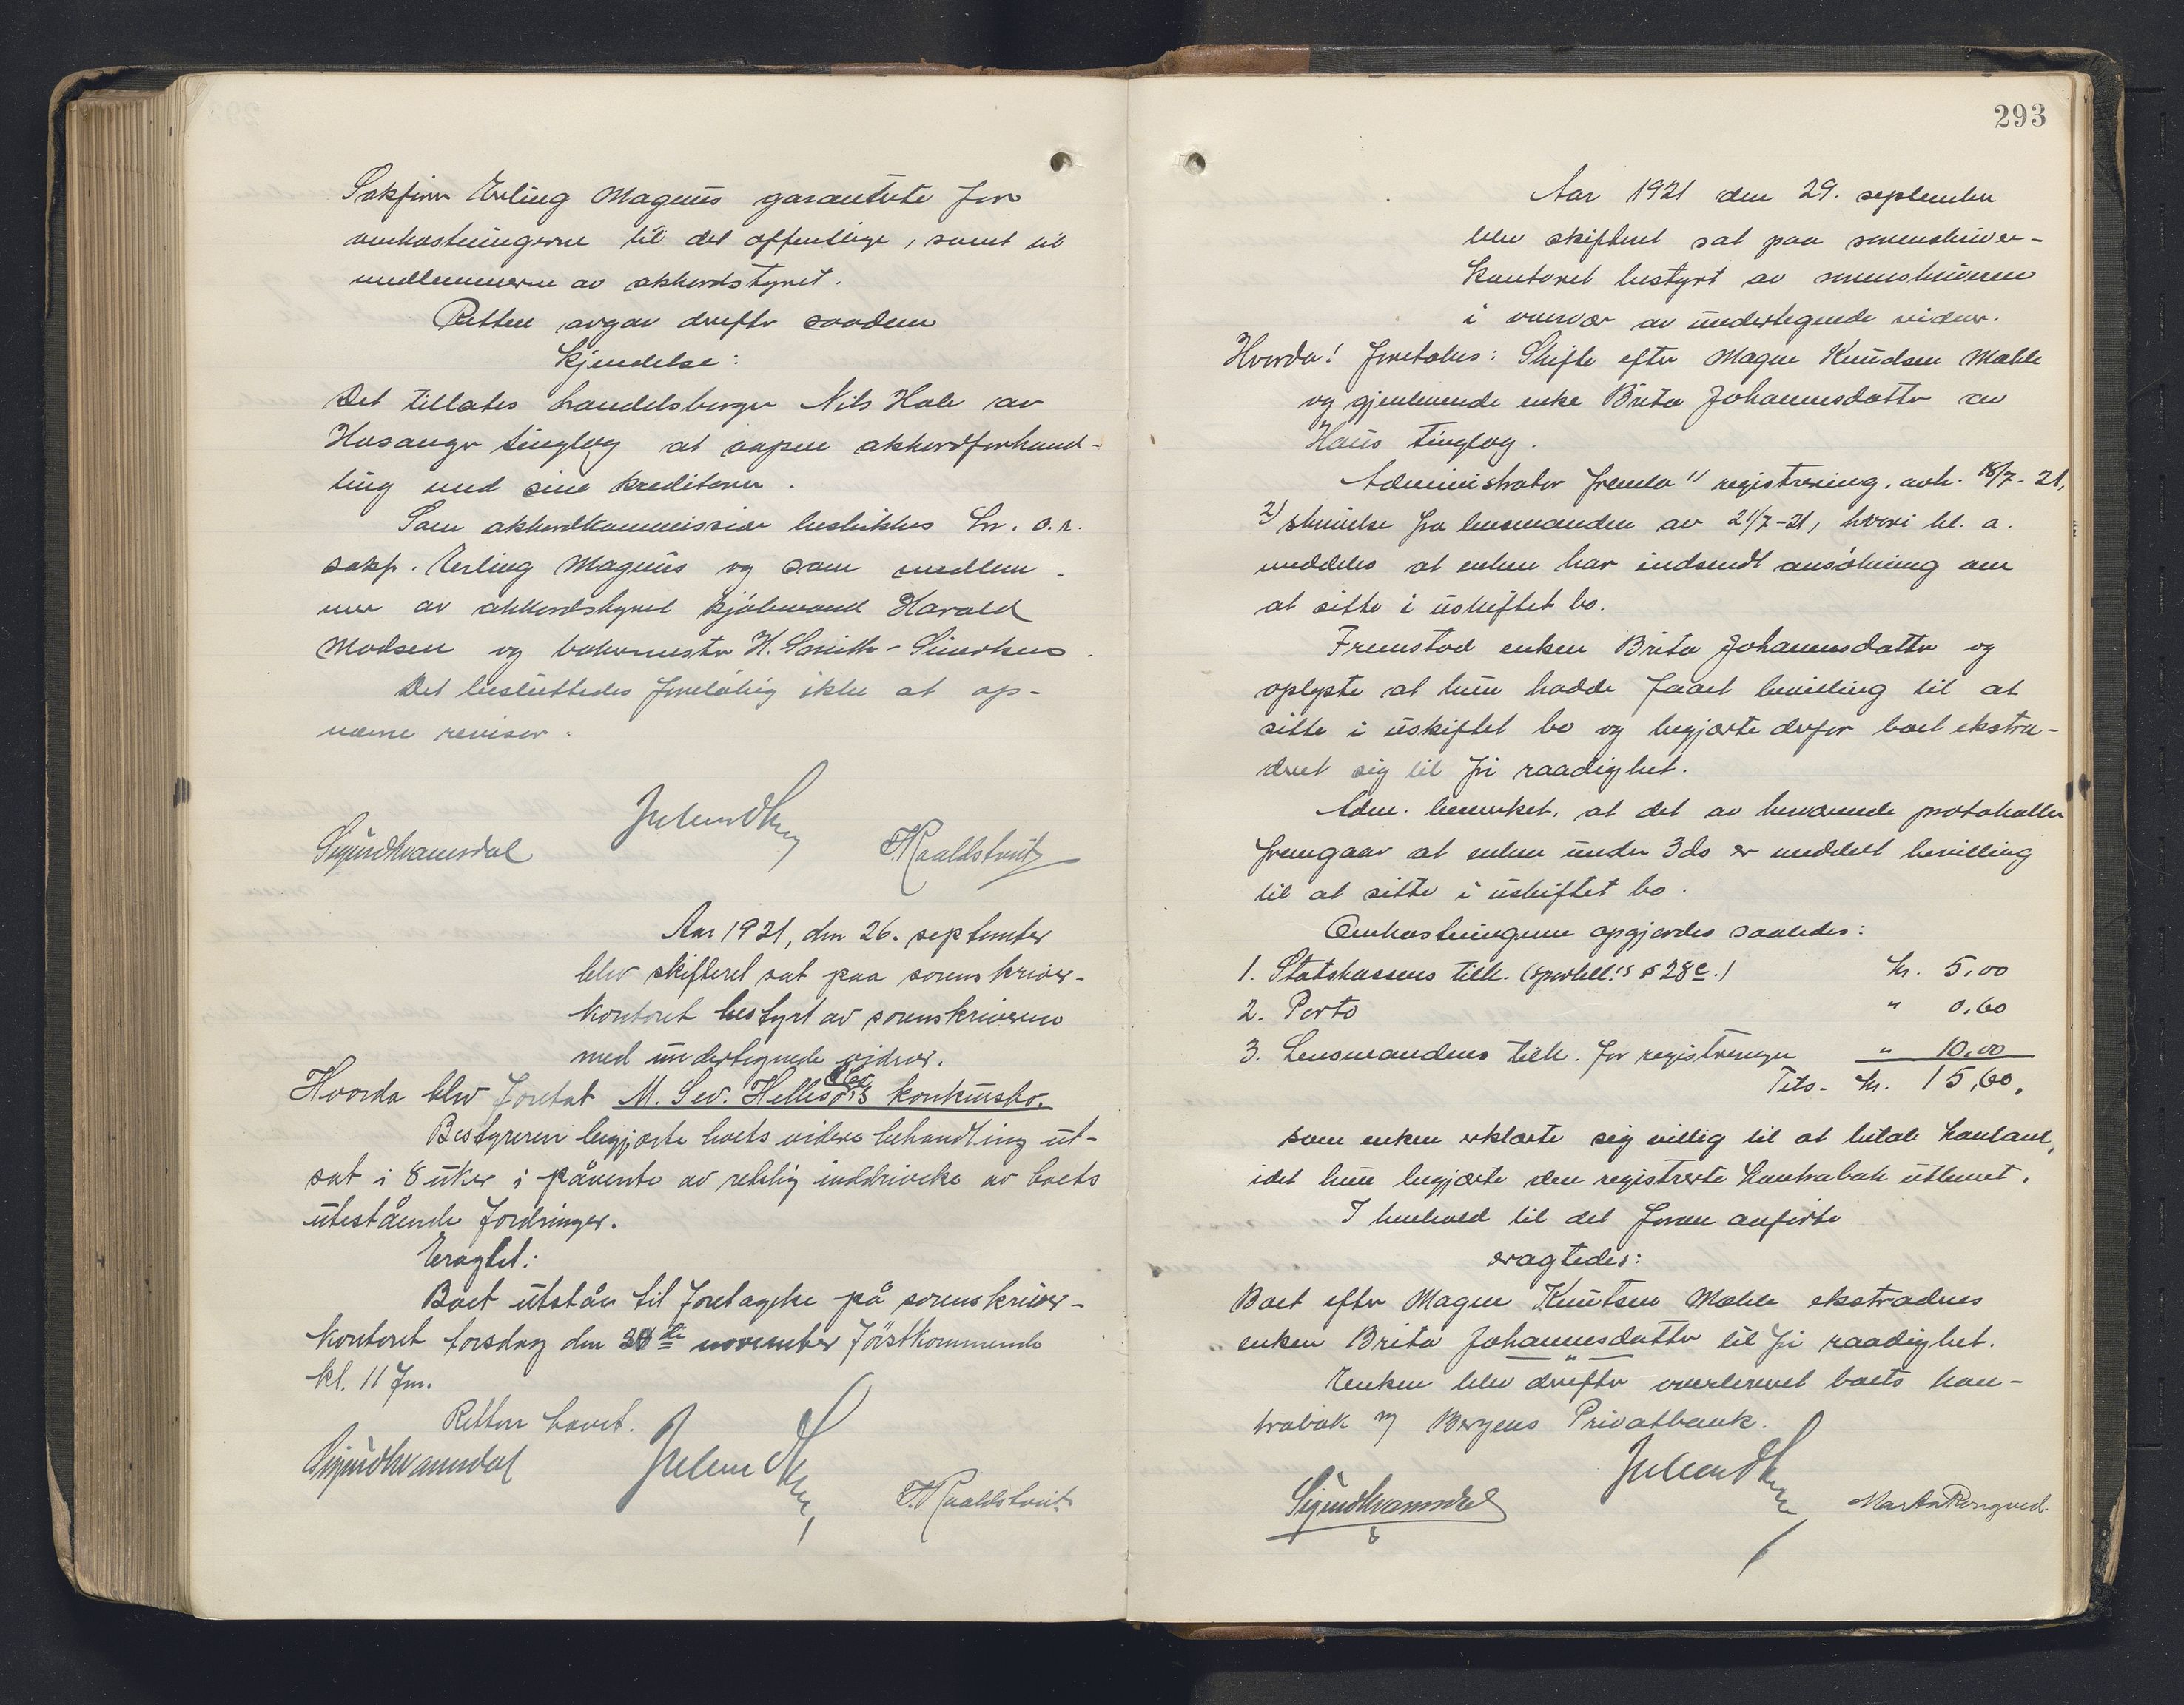 Sakfører Erling Magnus garanterte for
omkostningerne til det offentlige, samt til
medlemmerne av akkordstyret.
Retten avgav derefter saadan
kjendelse:
Det tillates handelsborger Nils Hole av
Hosanger tinglag at aapne akkordforhand-
ling med sine kreditorer.
Som akkordkommissær beskikkes hr. o.r.
sakf. Erling Magnus og som medlem-
mer av akkordstyret kjøbmand Harald
Madsen og bokermester H. Smith-Sivertsen.
Det besluttedes foreløbig ikke at op-
nævne revisor.
Sigurd Kvamsdal
H. Raaldstveit
Aar 1921, den 26. september
blev skifteret sat paa sorenskriver-
kontoret bestyrt av sorenskriveren
med undertegnede vidner.
Hvorda blev foretat M. Sev. Hellesøes konkursbo.
Bestyreren begjærte boets videre behandling ut-
sat i 8 uker i påvente av retslig inddrivelse av boets
utestående fordringer.
Eragtet:
Boet utstår til foretagelse på sorenskriver-
kontoret torsdag den november førstkommende
kl. 11 fm.
Retten hævet.
Sigurd Kvamsdal
H. Raaldstveit
293
Aar 1921 den 29. september
blev skifteret sat paa sorenskriver-
kontoret bestyrt av sorenskriveren
i overvær av undertegnede vidner.
Hvorda! foretokes: Skifte efter Magne Knudsen Mæhle
og gjenlevende enke Brita Johannesdatter av
Haus tinglag.
Administrator fremla 1) registrering, avh. 18/7-21,
2) skrivelse fra lensmanden av 21/7-21, hvori bl. a.
meddeles at enken har indsendt ansøkning om
at sitte i uskiftet bo.
Fremstod enken Brita Johannesdatter og
oplyste at hun hadde faaet bevilling til at
sitte i uskiftet bo og begjærte derfor boet ekstra-
deret sig til fri raadighet.
Adm. bemerket, at det av herværende protokoller
fremgaar at enken under 3ds er meddelt bevilling
til at sitte i uskiftet bo.
Omkostningerne opgjordes saaledes:
1. Statskassens tilk. (sportell.s § 28c.) kr. 5,00
2. Porto " 0,60
3. Lensmandens tilk. for registreringen " 10,00
Tils. kr. 15,60,
som enken erklærte sig villig til at betale kontant,
idet hun begjærte den registrerte kontrabok utlevert.
I henhold til det foran anførte
eragtedes:
Boet efter Magne Knutsen Mæhle ekstraderes
enken Brita Johannesdatter til fri raadighet.
Enken blev derefter overleveret boets kon-
trabok m/ Bergens Privatbank.
Sigurd Kvamsdal